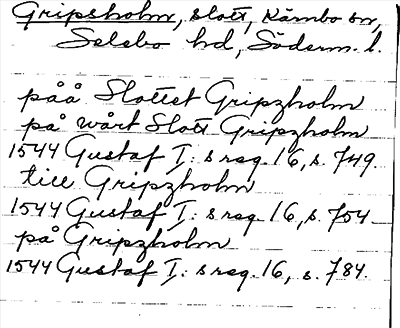 Gripsholm, slott, Kärnbo sn,
Selebo hd, Söderm. l.
påå Slottet Gripzholm
på wårt Slott Gripzholm
1544 Gustaf I: s reg. 16, s. 749.
till Gripzholm
1544 Gustaf I: s reg. 16, s. 754
på Gripzholm
1544 Gustaf I: s reg. 16, s. 784.